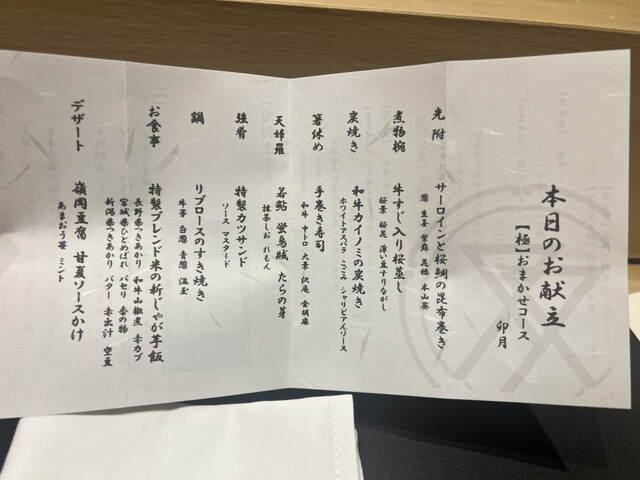 本日のお献立
【極】おまかせコース
卯月
先附
サーロインと桜鯛の昆布巻き
葱 生姜 紫蘇 花穂 本山葵
煮物椀
牛すじ入り桜蒸し
桜葉 桜花 薄い豆すりながし
炭焼き
和牛カイノミの炭焼き
ホワイトアスパラ こごみ シャリピアンソース
箸休め
手巻き寿司
和牛 中トロ 大葉 沢庵 金胡麻
天婦羅
若鮎 蛍烏賊 たらの芽
抹茶しお れもん
強肴
特製カツサンド
ソース マスタード
鍋
リブロースのすき焼き
牛蒡 白葱 青葱 温玉
お食事
特製ブレンド米の新じゃが芋飯
長野県つきあかり 和牛山椒煮 赤カブ
宮城県ひとめぼれ パセリ 香の物
新潟県つきあかり バター 赤出汁 空豆
デザート
嶺岡豆腐 甘夏ソースかけ
あまおう苺 ミント